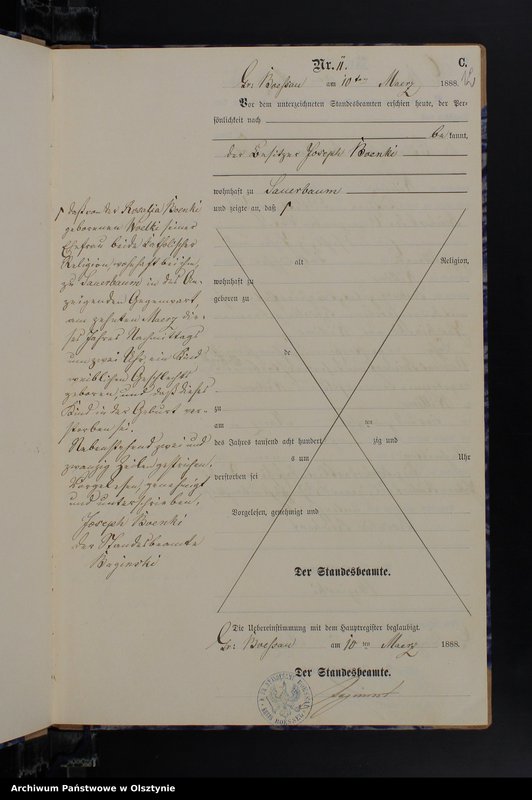 Nr. 11.
C.
Gr: Boessau am 10ten Maerz 1888.
Vor dem unterzeichneten Standesbeamten erschien heute, der Per-
sönlichkeit nach
be kannt,
der Besitzer Joseph Boenki
wohnhaft zu Sauerbaum
und zeigte an, daß
daß von der Rosalia Boenki
geborenen Woelki seiner
Ehefrau beide katholischer
Religion, wohnhaft bei ihm,
zu Sauerbaum in des An-
zeigenden Gegenwart,
am zehnten Maerz die-
ses Jahres Nachmittags
um zwei Uhr, ein Kind
weiblichen Geschlechts
geboren, und daß dieses
Kind in der Geburt ver-
storben sei.
Nebenstehend zwei und
zwanzig Zeilen gestrichen.
Vorgelesen, genehmigt
und unterschrieben,
Joseph Boenki
der Standesbeamte
Baginski
alt Religion,
wohnhaft zu
geboren zu
de
zu
am ten
des Jahres tausend acht hundert zig und
s um Uhr
verstorben sei
Vorgelesen, genehmigt und
Der Standesbeamte.
Die Uebereinstimmung mit dem Hauptregister beglaubigt.
Gr: Boessau am 10 ten Maerz 1888.
Der Standesbeamte.
Archiwum Państwowe w Olsztynie